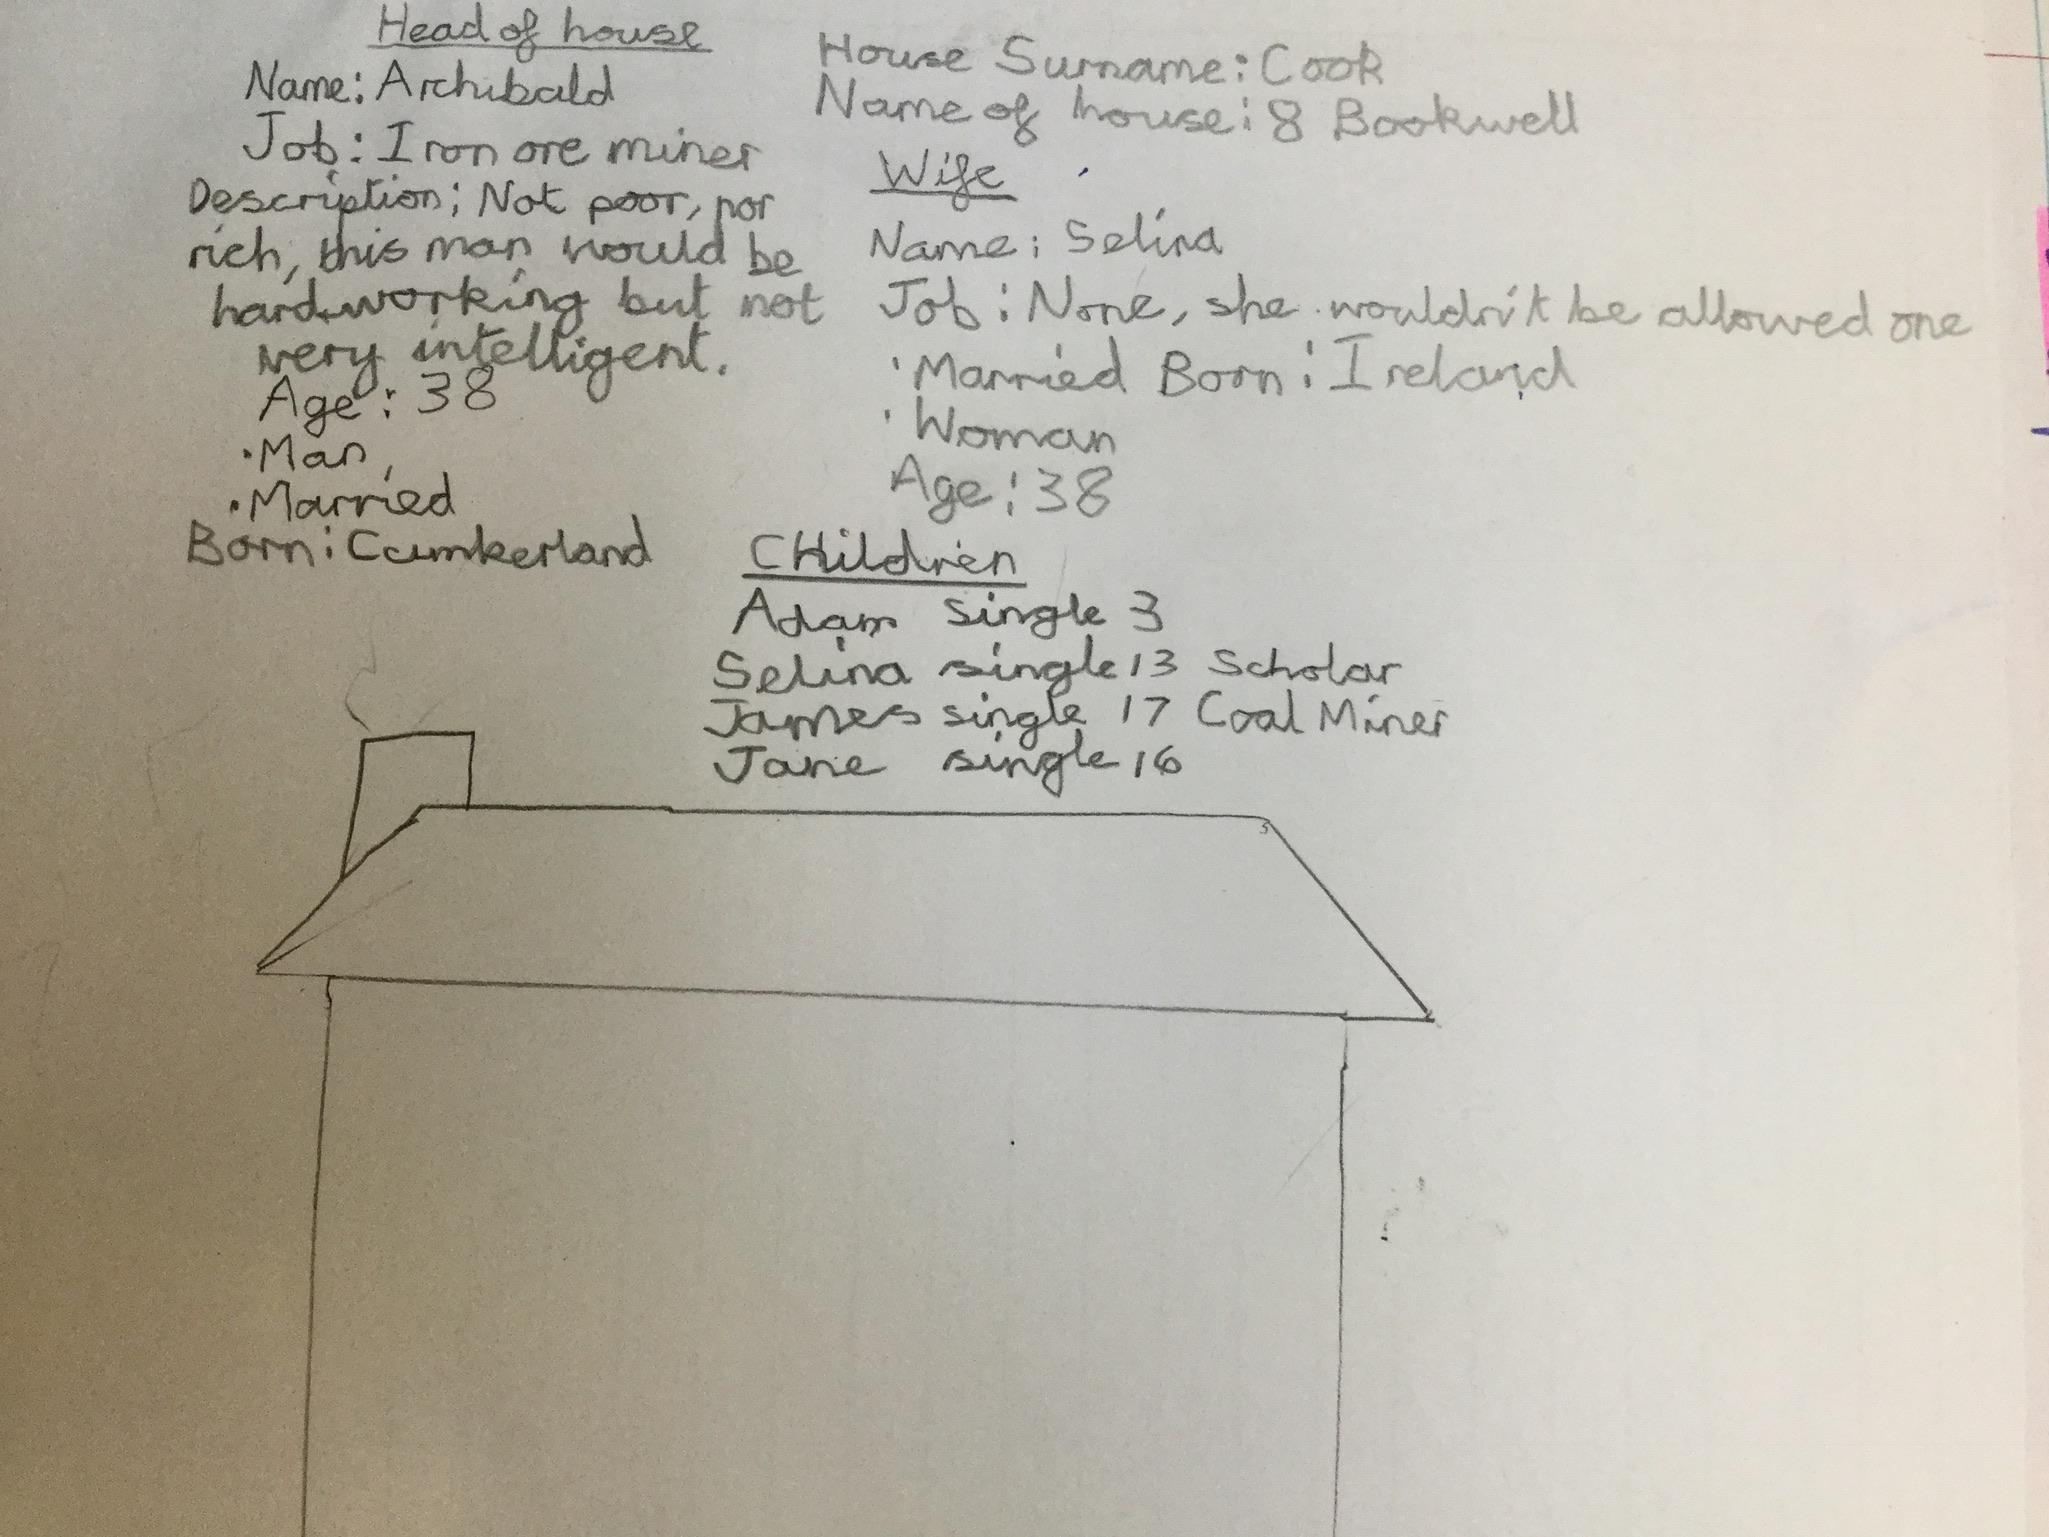 Head of house
Name: Archibald
Job: Iron ore miner
Description: Not poor, nor
rich, this man would be
hardworking but not
very intelligent.
Age: 38
·Man,
·Married
Born: Cumberland
House Surname: Cook
Name of house: 8 Bookwell
Wife
Name: Selina
Job: None, she wouldn't be allowed one
·Married Born: Ireland
·Woman
Age: 38
CHildren
Adam single 3
Selina single 13 Scholar
James single 17 Coal Miner
Jane single 16